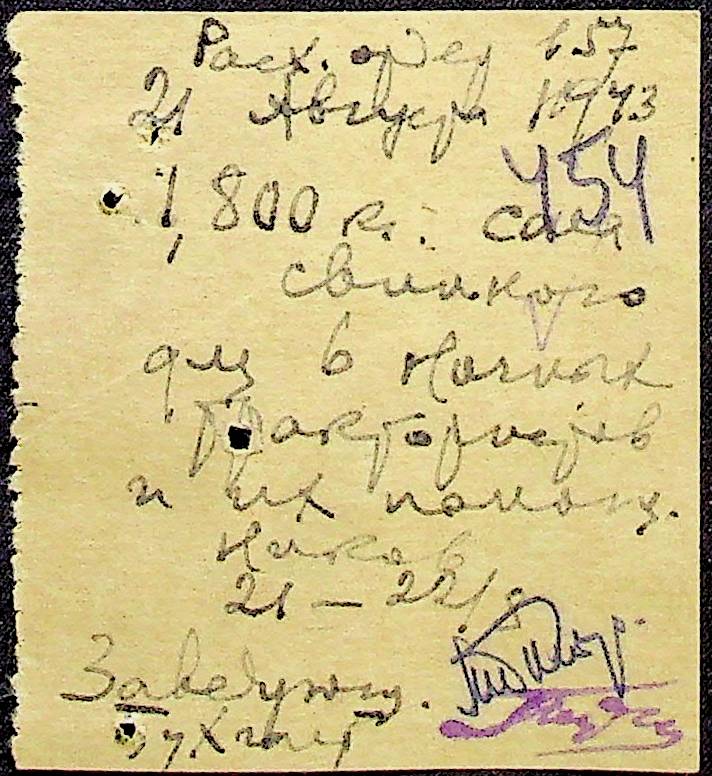 Расх. орд 157
21 Августа 1943
454
1,800 к. сала
свиного
для 6 ночных
трактористов
и их помощ.
ников
21 – 22/
Заведующ.